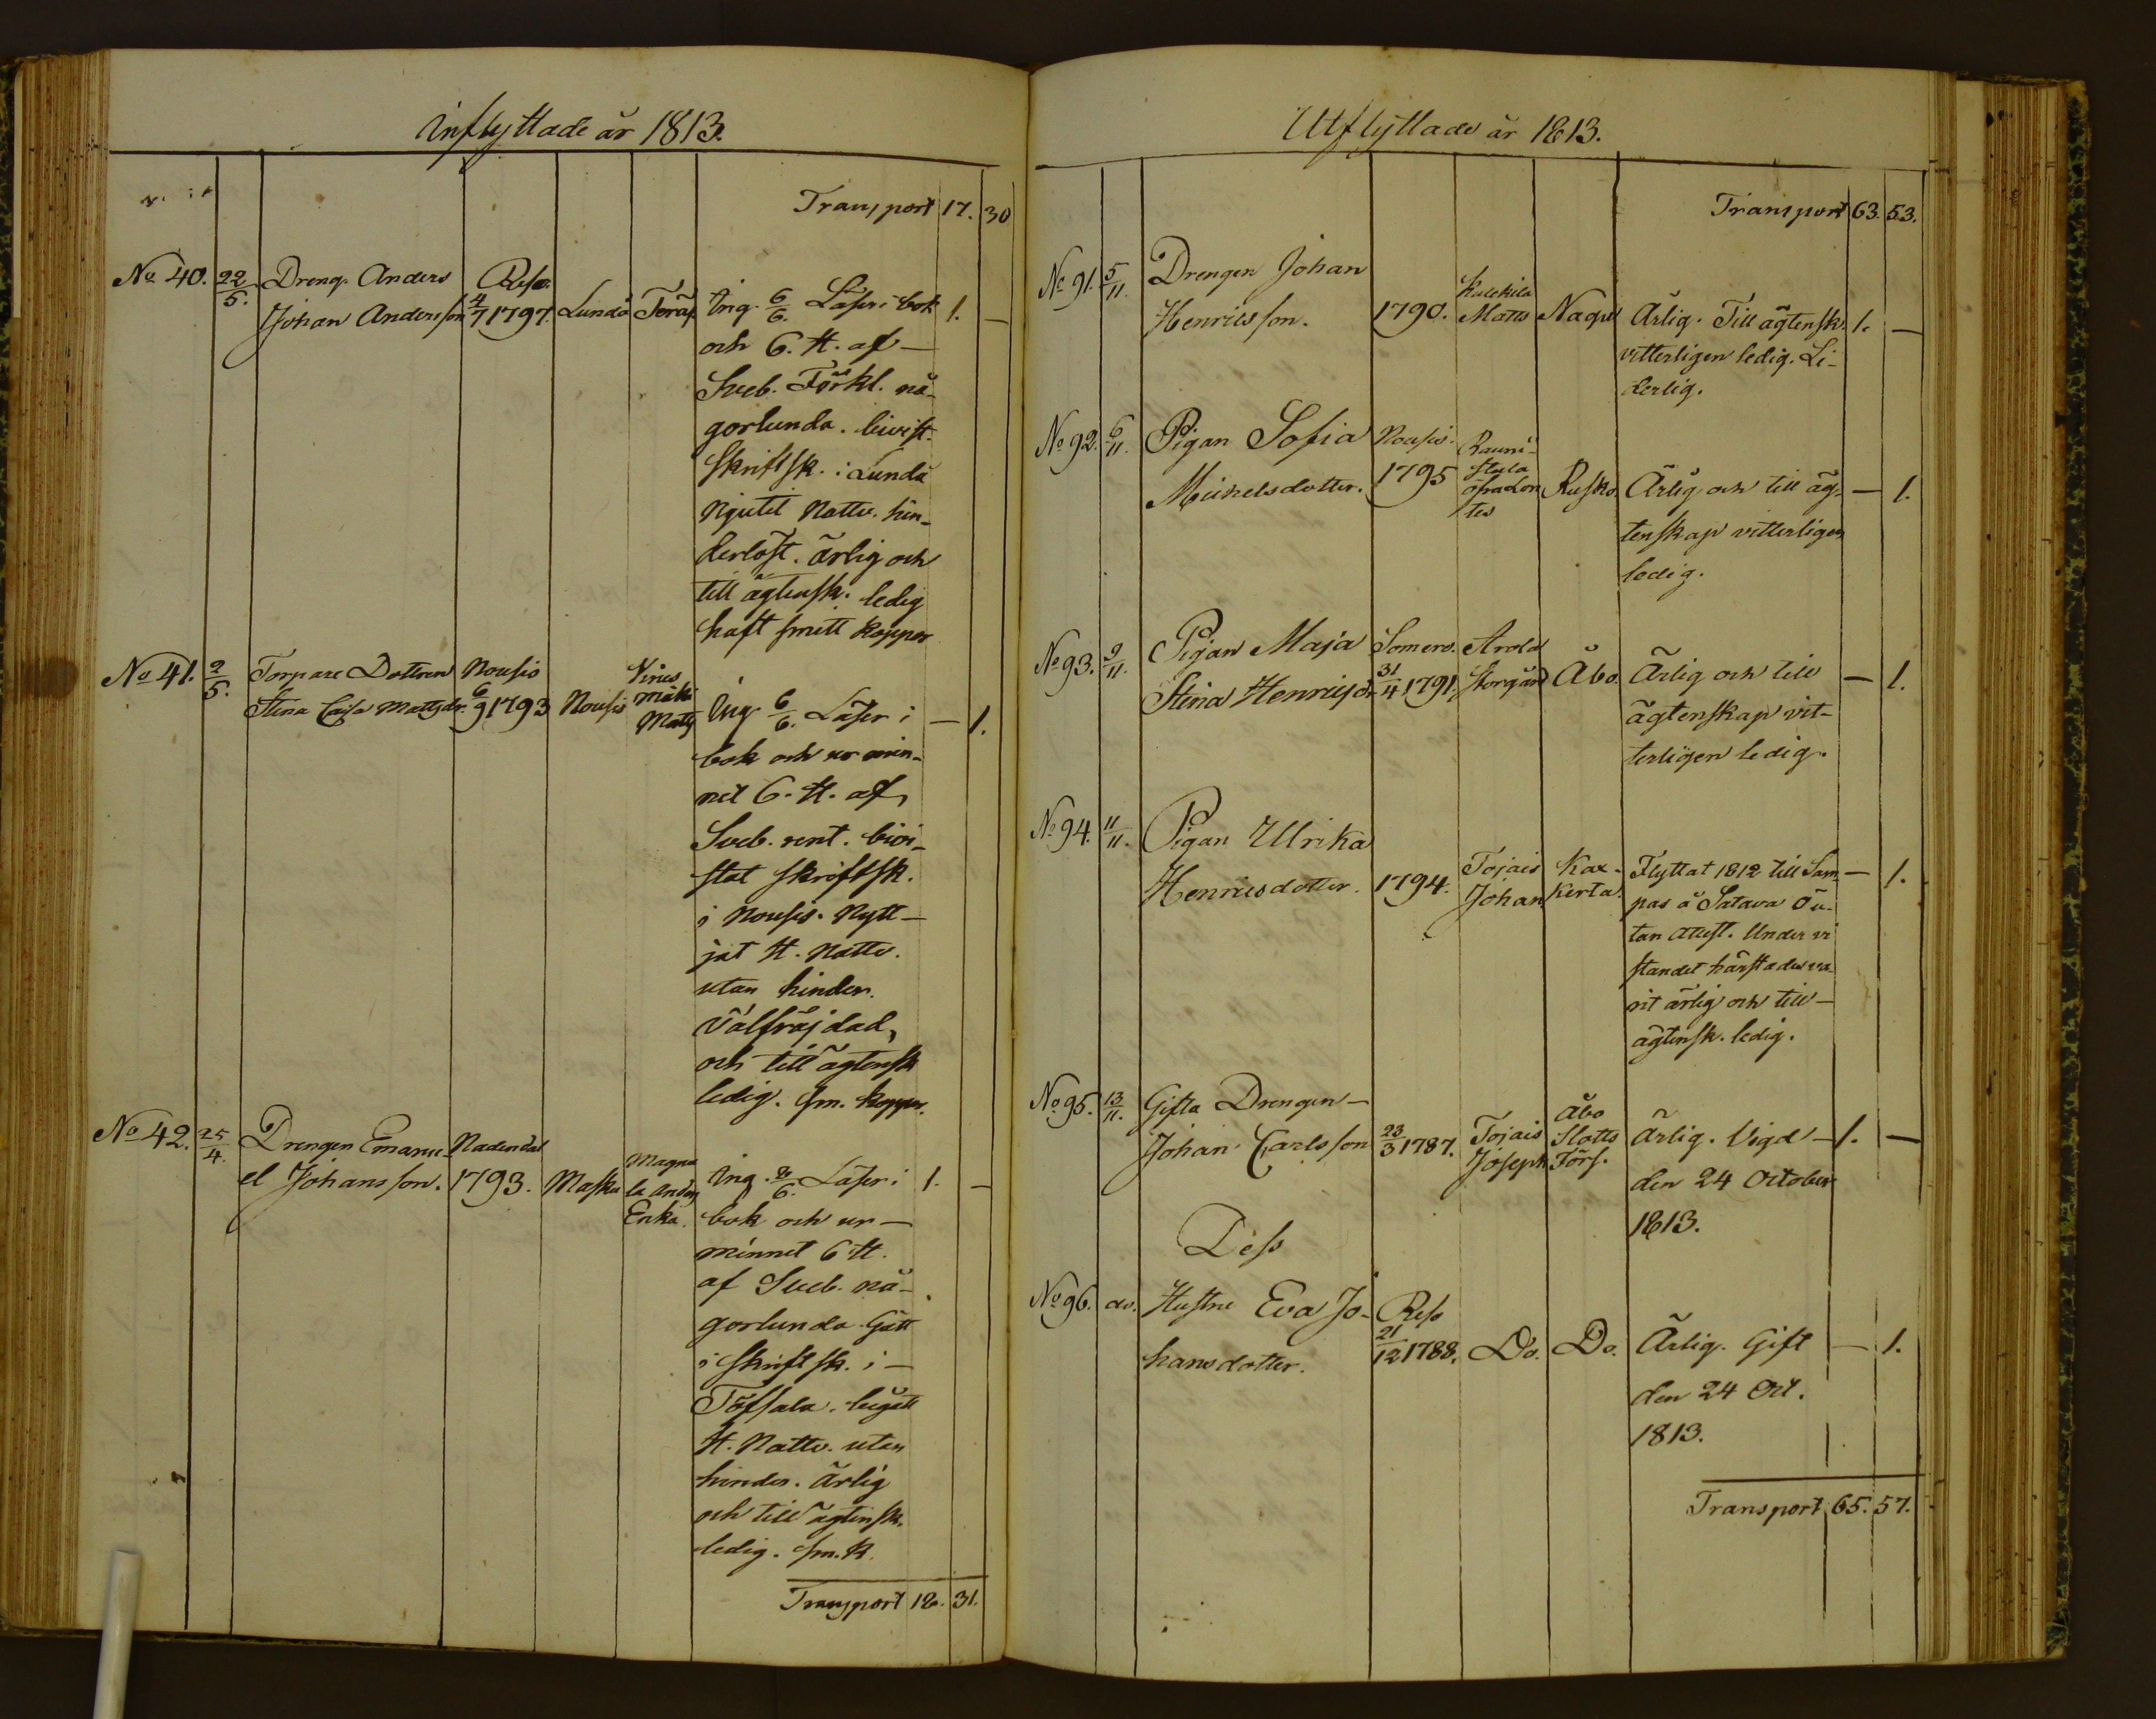 Inflyttade år 1813.
Transport 17. 30
No 40. 22/5. Dreng. Anders Reso.
Johan Andersson 4/7 1797. Lundo Teräs Ing. 6/6. Läser i bok 1. —
och C. H. af —
Sveb. Förkl. nå-
gorlunda. bivist.
Skriftsk. i Lundo
Njutit Nattv. hin-
derlöst. ärlig och
till ägtensk. ledig
haft smitt koppor
No 41. 2/5. Torpare Dottren Nousis
Stina Caisa Mattsdr. 6/9 1793 Nousis mäki Matts Ing 6/6. Läser i — 1.
bok och ur min-
net C. H. af
Sveb. rent. bivi-
stat skriftsk.
i Nousis. Nytt-
jat H. Nattv.
utan hinder.
Välfräjdad,
och till ägtensk
ledig. sm. koppor.
No 42. 25/4. Drengen Emanu- Nadendal
el Johansson. 1793. Masku Magna
la Anders
Erika. Ing. /6. Läser i 1. —
bok och ur —
minnet C. H.
af Sveb. nå-
gorlunda. Gått
i skriftsk. i —
Töfsala. begått
H. Nattv. utan
hinder. Ärlig
och till ägtensk.
ledig. sm. k.
Transport 18. 31.
Utflyttade år 1813.
Transport 63. 53.
No 91. 5/11. Drengen Johan
Henricsson. 1790. Matts Nagu Ärlig. Till ägtensk. 1. —
vitterligen ledig. Li-
derlig.
No 92. 6/11. Pigan Sofia Nousis.
Michelsdotter. 1795 Rauni-
stula Rusko. Ärlig och till äg- — 1.
tenskap vitterligen
ledig.
No 93. 9/11. Pigan Maja Somero. Arola
Stina Henricsdr. 31/4 1791. Storgård Åbo. Ärlig och till — 1.
ägtenskap vit-
terligen ledig.
No 94. 11/11. Pigan Ulrika
Henricsdotter. 1794. Tojais
Johan Kax-
kerta. Flyttat 1812 till Sam- — 1.
pas å Satava Ö u-
tan attest. Under vi
standet härstädes va-
rit ärlig och till —
ägtensk. ledig.
No 95. 13/11. Gifta Drengen —
Johan Carlsson 23/3 1787. Tojais
Joseph Åbo
Slotts
Förs. Ärlig. Vigd — 1. —
den 24 October
1813.
Dess
No 96. do. Hustru Eva Jo- Reso
hansdotter. 21/12 1788. Do. Do. Ärlig. Gift — 1.
den 24 Oct.
1813.
Transport 65. 57.